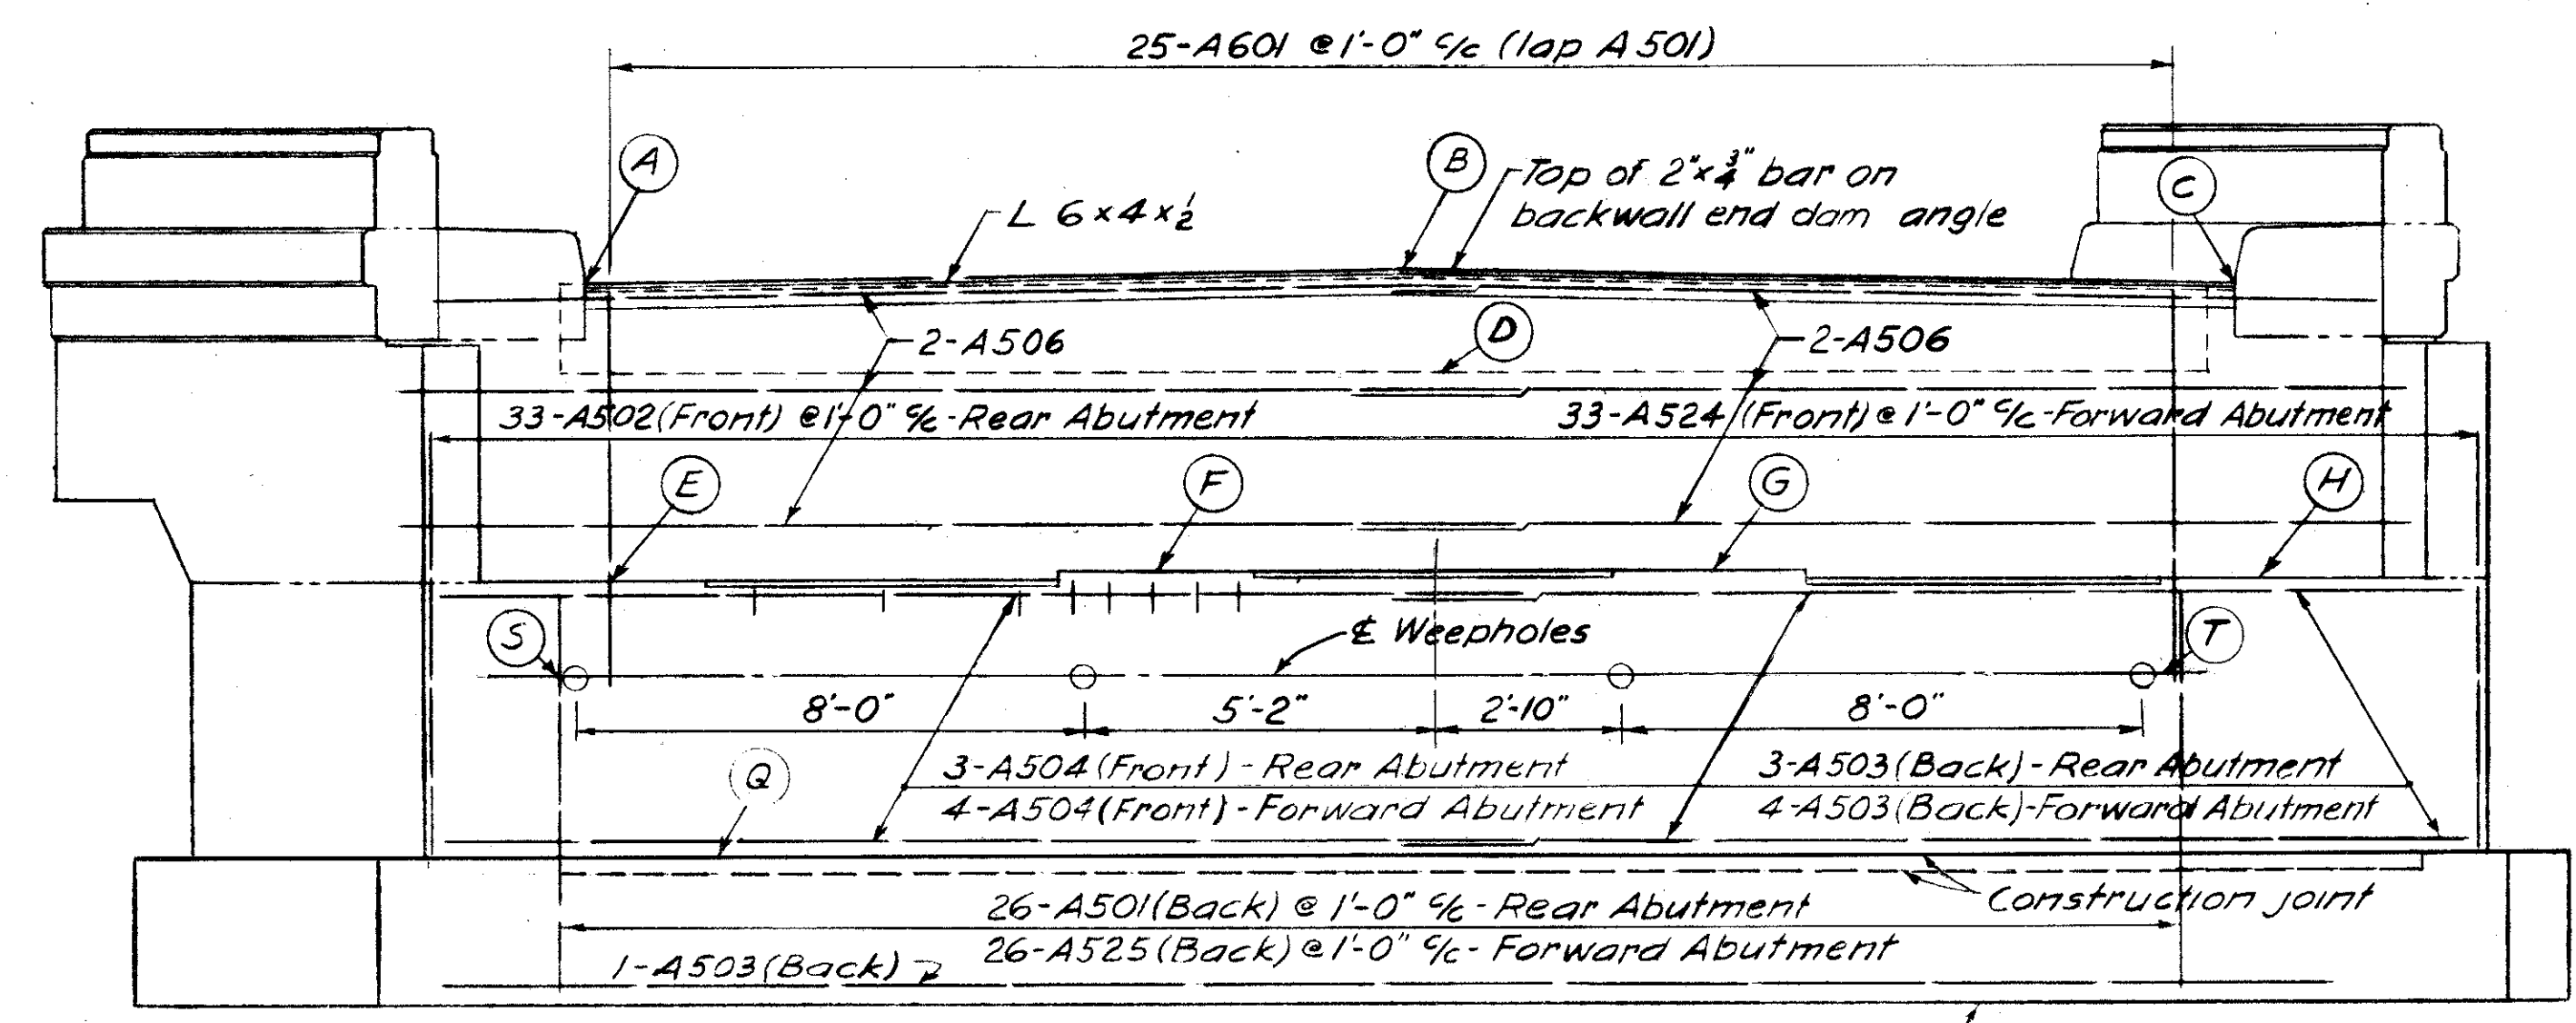 25-A601 @ 1'-0" c/c (lap A501)
A
B
Top of 2"x3/4" bar on
backwall end dam angle
C
L 6x4x1/2
2-A506
D
2-A506
33-A502(Front) @ 1'-0" c/c-Rear Abutment
33-A524 (Front) @ 1'-0" c/c-Forward Abutment
E
F
G
H
S
℄ Weepholes
T
8'-0"
5'-2"
2'-10"
8'-0"
Q
3-A504(Front)-Rear Abutment
3-A503(Back)-Rear Abutment
4-A504(Front)-Forward Abutment
4-A503(Back)-Forward Abutment
26-A501(Back) @ 1'-0" c/c-Rear Abutment
Construction joint
26-A525(Back) @ 1'-0" c/c-Forward Abutment
1-A503(Back)